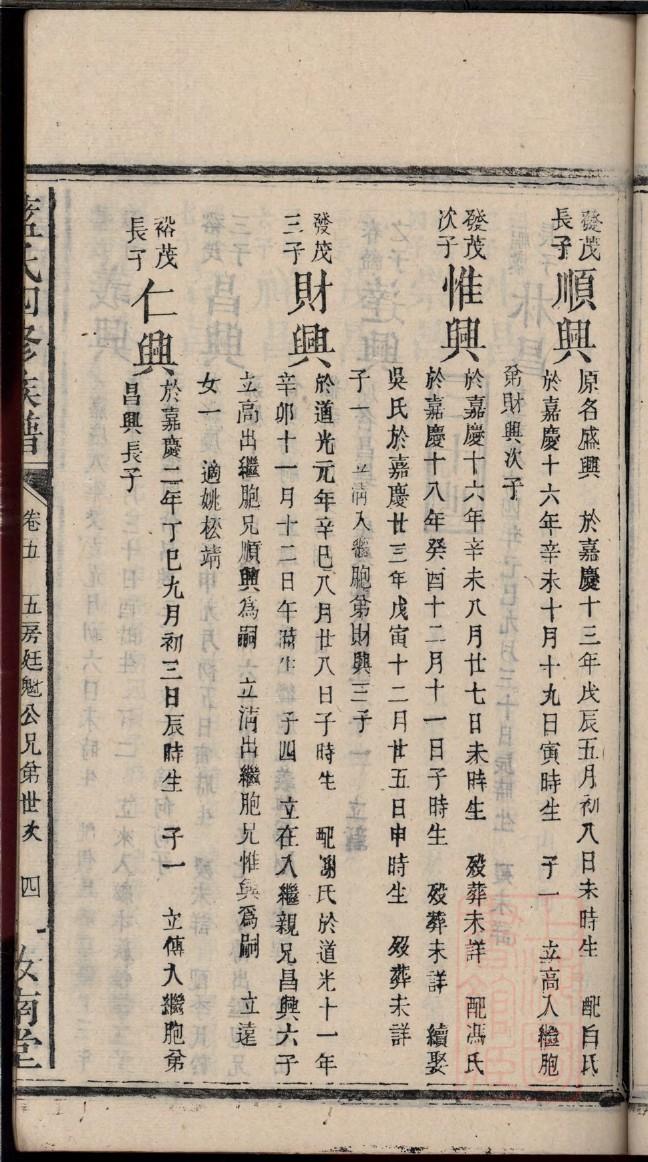 發茂長子
順興
原名盛興 於嘉慶十三年戊辰五月初八日未時生 配白氏
於嘉慶十六年辛未十月十九日寅時生 子一 立高入繼胞
弟財興次子
發茂次子
惟興
於嘉慶十六年辛未八月廿七日未時生 歿葬未詳 配馮氏
於嘉慶十八年癸酉十二月十一日子時生 歿葬未詳 續娶
吳氏於嘉慶廿三年戊寅十二月廿五日申時生 歿葬未詳
子一 立淸入繼胞弟財興三子
發茂三子
財興
於道光元年辛巳八月廿八日子時生 配謝氏於道光十一年
辛卯十一月十二日午時生 子四 立在入繼親兄昌興六子
立高出繼胞兄順興爲嗣 立淸出繼胞兄惟興爲嗣 立遠
女一 適姚松靖
裕茂長子
仁興
於嘉慶二年丁巳九月初三日辰時生 子一 立傳入繼胞弟
昌興長子
藍氏四修族譜 卷五 五房廷魁公兄弟世次 四 汝南堂